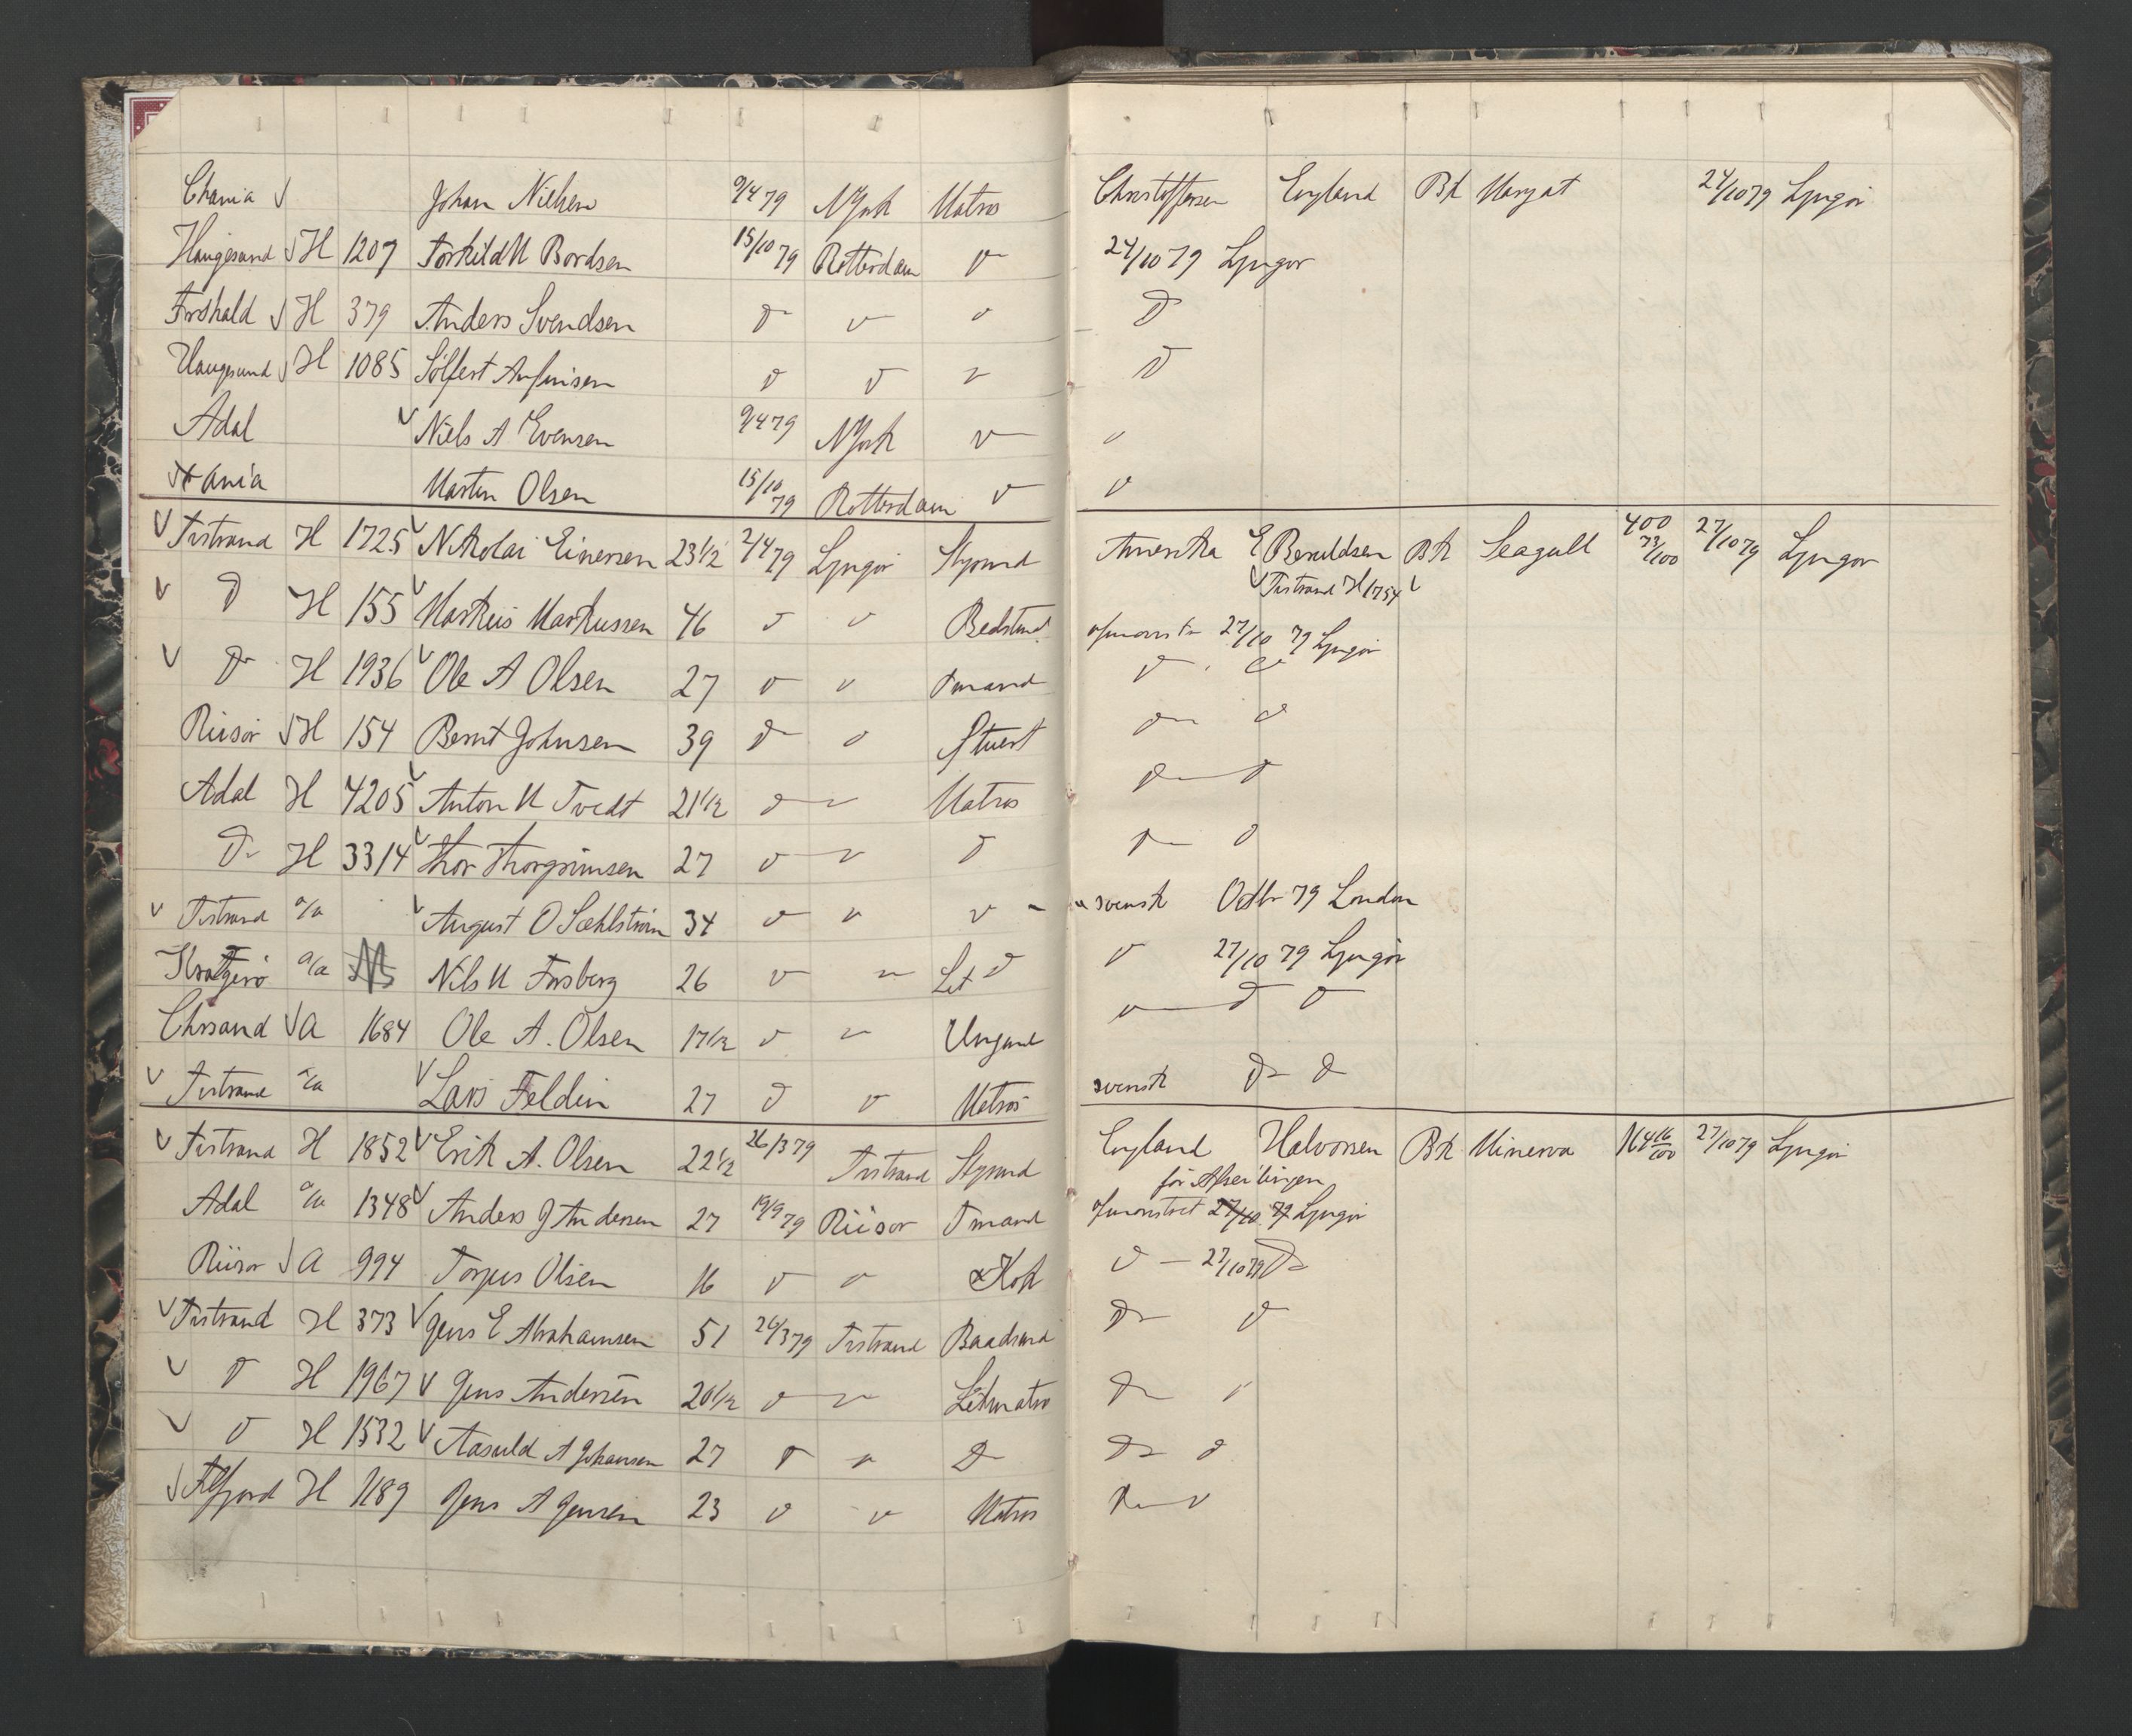 Chania Johan Nielsen 9/4 79 NYork Matros Christoffersen England Bk 24/10 79 Lyngør
Haugesund H 1207 Torkild M Bordsen 15/10 79 Rotterdam D 24/10 79 Lyngør
Frdhald H 379 Anders Svendsen D D D D
Haugesund H 1085 D D D D
Adal Niels A Evensen 9/4 79 NYork D D
Martin Olsen 15/10 79 Rotterdam D D
Tvstrand H 1725 Nikolai Einersen 23 1/2 2/4 79 Lyngør Styrmd Amerika E Beruldsen Bk Seagull 400 73/100 27/10 79 Lyngør
Tvstrand H 1754
D H 155 Markus Markussen 46 D D Bedstmd 27/10 79 Lyngør
D H 1936 Ole A Olsen 27 D D Tmand D D
Riisør H 154 Bernt Johnsen 39 D D Stuert D D
Adal H 4205 Anton M Tvedt 21 1/2 D D Matros D D
D H 3314 Thor Thorgrimsen 27 D D D D D
Tvstrand a/a August O 34 D D D svensk Octbr 79 London
a/a Nils M Forsberg 26 D D Let D D 27/10 79 Lyngør
Chrsand A 1684 Ole A. Olsen 17 1/2 D D Ungmd D D D
Tvstrand a/a Lars Feldin 27 D D Matros svensk D D
Tvstrand H 1852 Erik A. Olsen 22 1/2 26/3 79 Tvstrand Styrmd England Halvorsen Bk Minerva 164 16/100 27/10 79 Lyngør
Adal a/a 1348 Anders J Andersen 27 19/9 79 Riisør Tmand 27/10 79 Lyngør
Riisør A 994 Torjus Olsen 16 D D Kok D 27/10 79 D
Tvstrand H 373 Jens E Abrahamsen 51 26/3 79 Tvstrand Baadsmd D D
D H 1967 Jens Andersen 20 1/2 D D Letmatro D D
D H 1532 Aasuld A Johansen 27 D D D D D
H 1189 Jens A Jensen 23 D D Matros D D